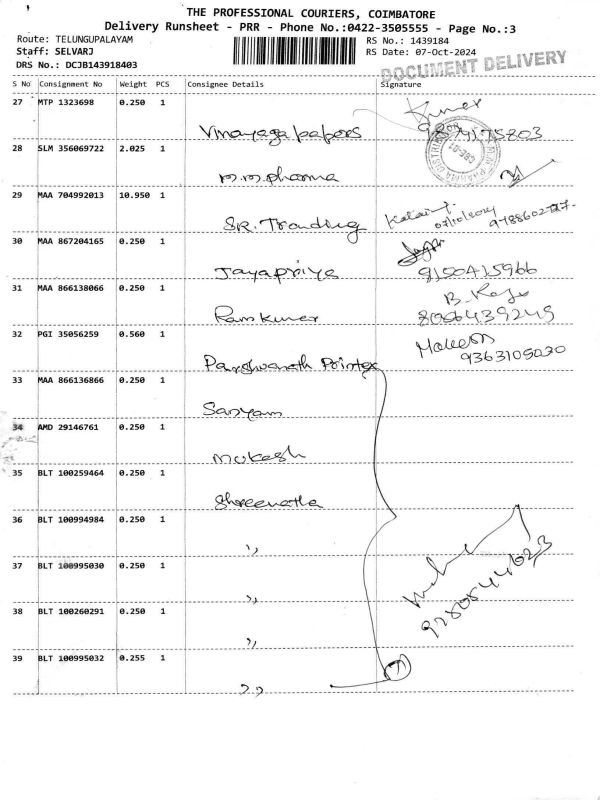 THE PROFESSIONAL COURIERS, COIMBATORE
Delivery Runsheet - PRR - Phone No.:0422-3505555 - Page No.:3
Route: TELUNGUPALAYAM RS No.: 1439184
Staff: SELVARJ RS Date: 07-Oct-2024
DRS No.: DCJB143918403 DOCUMENT DELIVERY
S No Consignment No Weight PCS Consignee Details Signature
27 MTP 1323698 0.250 1
Vinayaga papers
28 SLM 356069722 2.025 1
m.m.pharma
29 MAA 704992013 10.950 1
SR. Tranding 07/10/2024
30 MAA 867204165 0.250 1
Jayapriya 9150415966
31 MAA 866138066 0.250 1
B. Raju
Ramkumar 8056439249
32 PGI 35056259 0.560 1
Parshvanath Printex
33 MAA 866136866 0.250 1
Sanyam
34 AMD 29146761 0.250 1
mukesh
35 BLT 100259464 0.250 1
Shreenatha
36 BLT 100994984 0.250 1
,,
37 BLT 100995030 0.250 1
,,
38 BLT 100260291 0.250 1
,,
39 BLT 100995032 0.255 1
,, 7